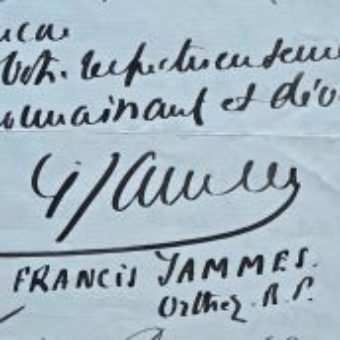 Votre respectueusement
reconnaissant et dév
Jammes
FRANCIS JAMMES.
Orthez. B. P.